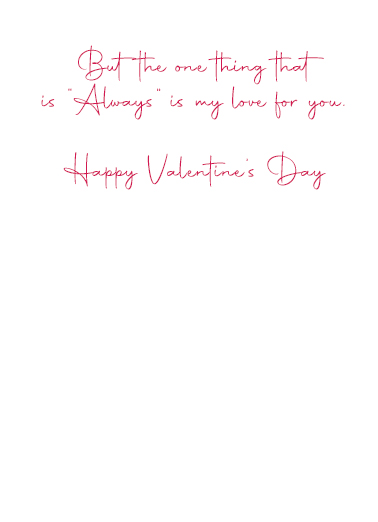 But the one thing that
is "Always" is my love for you.
Happy Valentine's Day